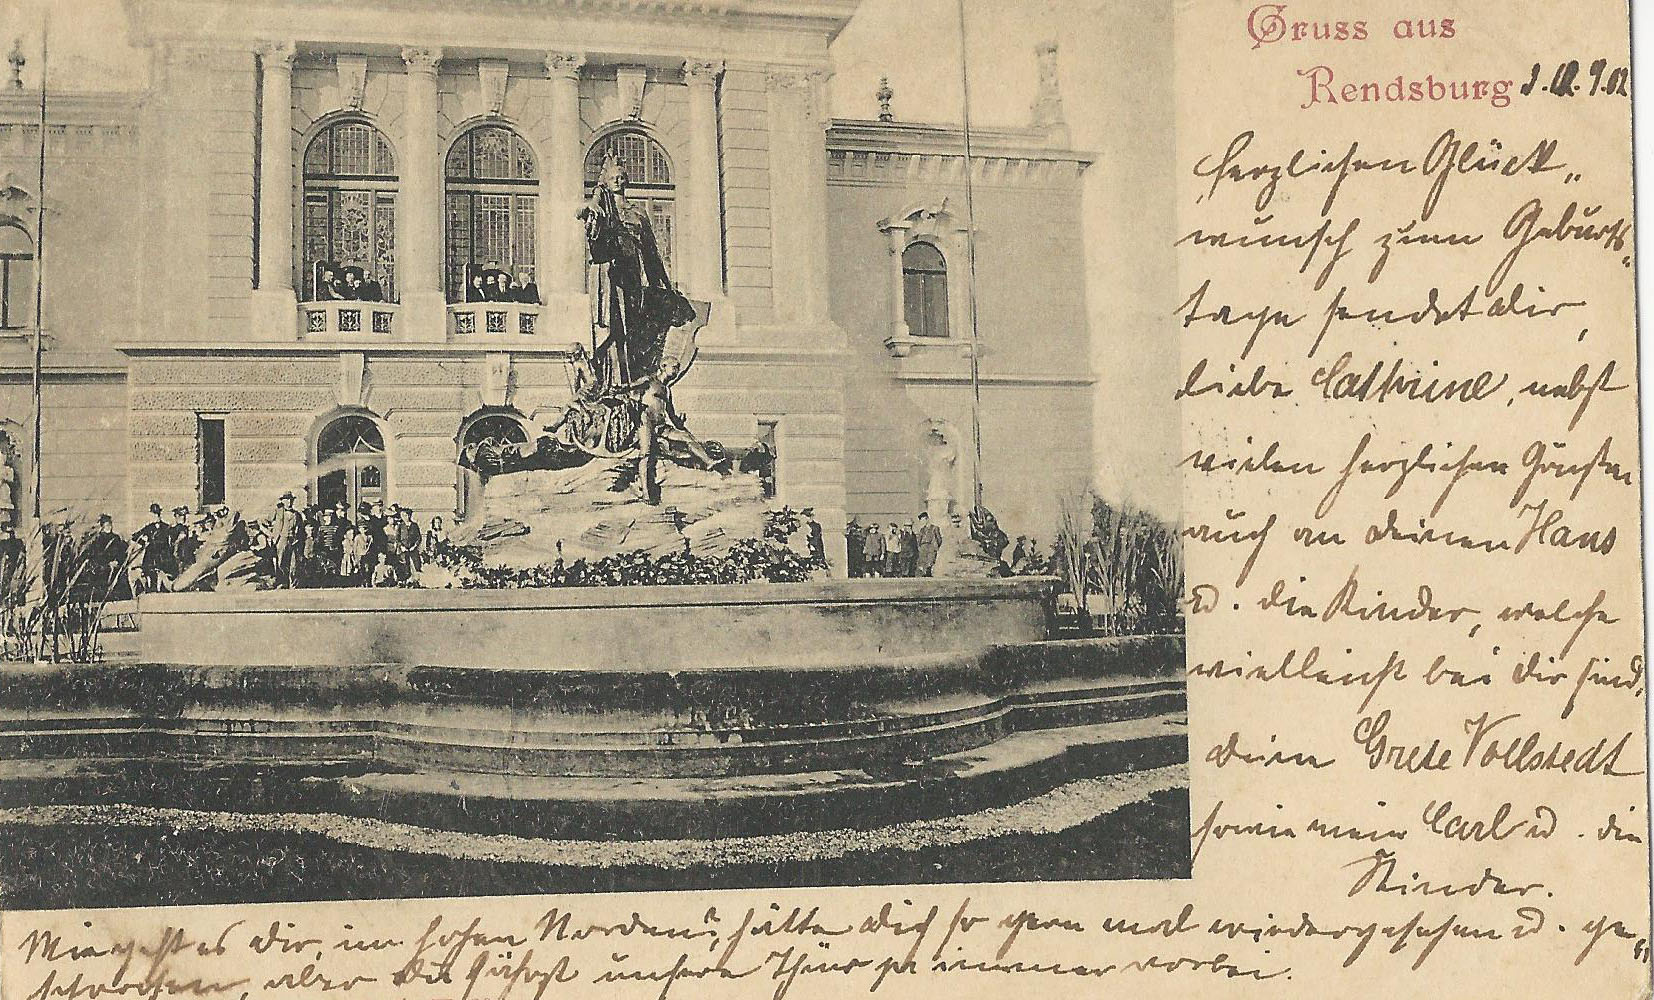 Gruss aus
Rendsburg
herzlichen Glück„
wunsch zum Geburts„
tage sendet dir,
liebe Cathrine, nebst
vielen herzlichen Grüßen
auch an deinen Hans
u. die Kinder, welche
vielleicht bei dir sind,
deine Grete Vollstedt
sowie mein Carl u. die
Kinder.
Wie geht es dir, im hohen Norden?, hätte dich so gern mal wiedergesehen u. ge„
sprochen, aber du unsere Thür ja immer vorbei.